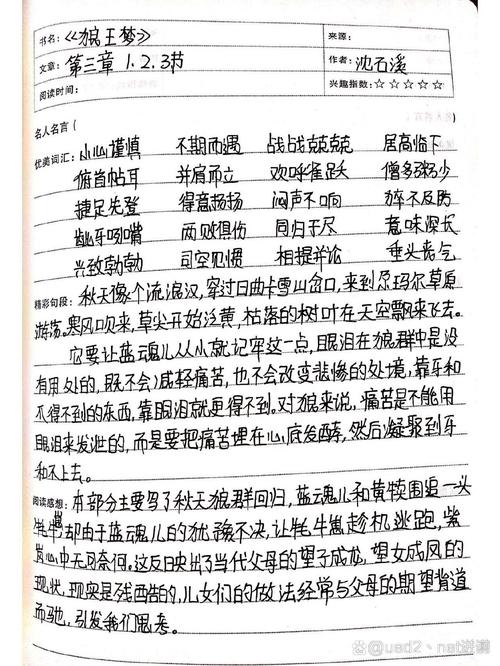 书名：《狼王梦》 来源：
文章：第三章 1.2.3节 作者：沈石溪
阅读时间： 兴趣指数：☆☆☆☆☆
名人名言（
优美词汇：小心谨慎 不期而遇 战战兢兢 居高临下
俯首帖耳 并肩而立 欢呼雀跃 僧多粥少
捷足先登 得意扬扬 闷声不响 猝不及防
龇牙咧嘴 两败俱伤 同归于尽 意味深长
兴致勃勃 司空见惯 相提并论 垂头丧气
精彩句段：秋天像个流浪汉，穿过日曲卡雪山谷口，来到尕玛尔草原
游荡。寒风吹来，草尖开始泛黄，枯落的树叶在天空飘来飞去。
它要让蓝魂儿从小就记牢这一点，眼泪在狼群中是没
有用处的，既不会减轻痛苦，也不会改变悲惨的处境，靠牙和
爪得不到的东西，靠眼泪就更得不到。对狼来说，痛苦是不能用
眼泪来发泄的，而是要把痛苦埋在心底发酵，然后凝聚到牙
和爪上去。
阅读感想：本部分主要写了秋天狼群回归，蓝魂儿和黄犊围追一头
牦牛崽却由于蓝魂儿的犹豫不决，让牦牛崽趁机逃跑，紫
岚心中无可奈何。这反映出了当代父母的望子成龙，望女成凤的
现状，现实是残酷的，儿女们的做法经常与父母的期望背道
而驰，引发我们思考。